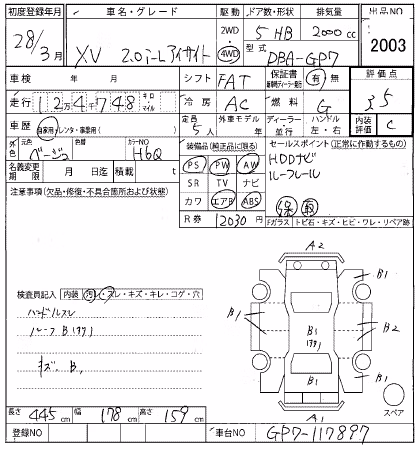 初度登録年月 車名・グレード 駆動 ドア数・形状 排気量 出品NO
28/3月 XV 2.0i-L アイサイト 2WD・4WD 5HB 2000cc 2003
型式 DBA-GP7
車検 年 月 シフト FAT 保証書 有 無 評価点
走行 124748 キロ マイル 冷房 AC 燃料 G 3.5
車歴 自家用・レンタ・事業用( ) 定員 5人 外車モデル 年 ディーラー 並行 ハンドル 左・右 内装評価 C
外色 元色 ベージュ 色替 カラーNO H6Q 装備品(純正品に限る) セールスポイント(正常に作動するもの)
名義変更期限 月 日迄 積載 t PS PW AW HDDナビ
注意事項(欠品・修復・不具合箇所および状態) SR TV ナビ ルーフレール
カワ エアB ABS 保 取
R券 12030円 Fガラス トビ石・キズ・ヒビ・ワレ・リペア跡
A2
B1
検査員記入 内装 汚レ・スレ・キズ・キレ・コゲ・穴
B1 B2
ハンドルスレ
ルーフ B
キズ、B、
B1 B1
スペア
長さ 445cm 幅 178cm 高さ 159cm A1
登録NO 車台NO GP7-117897